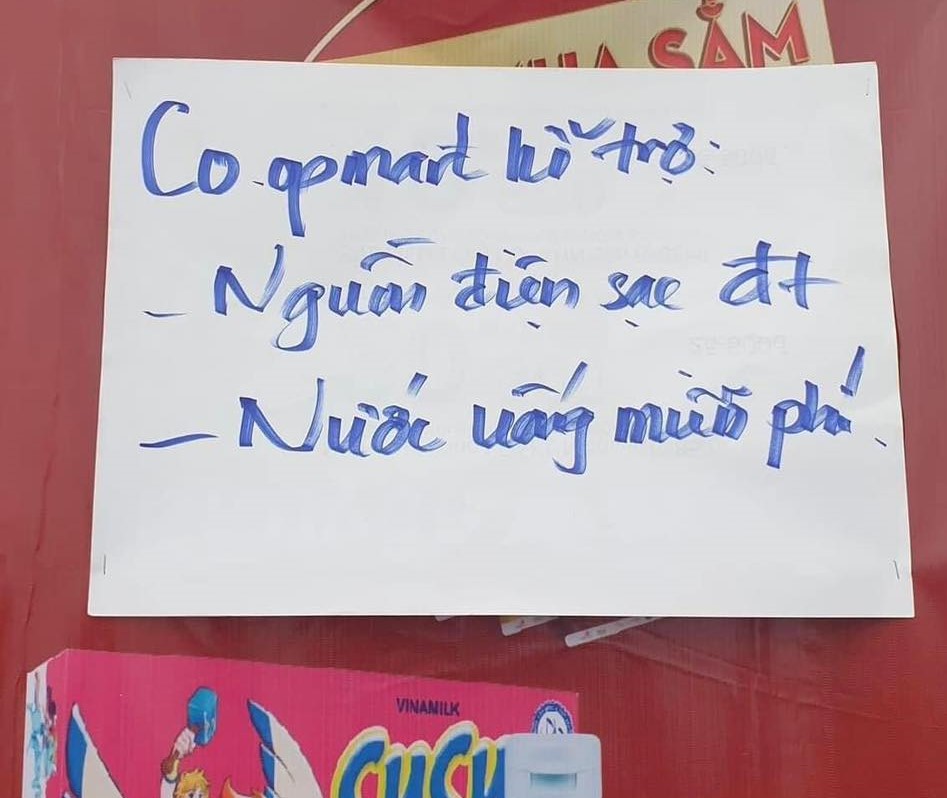 MUA SẮM
Co.opmart hỗ trợ:
- Nguồn điện sạc đt
- Nước uống miễn phí.
VINAMILK
SUSU